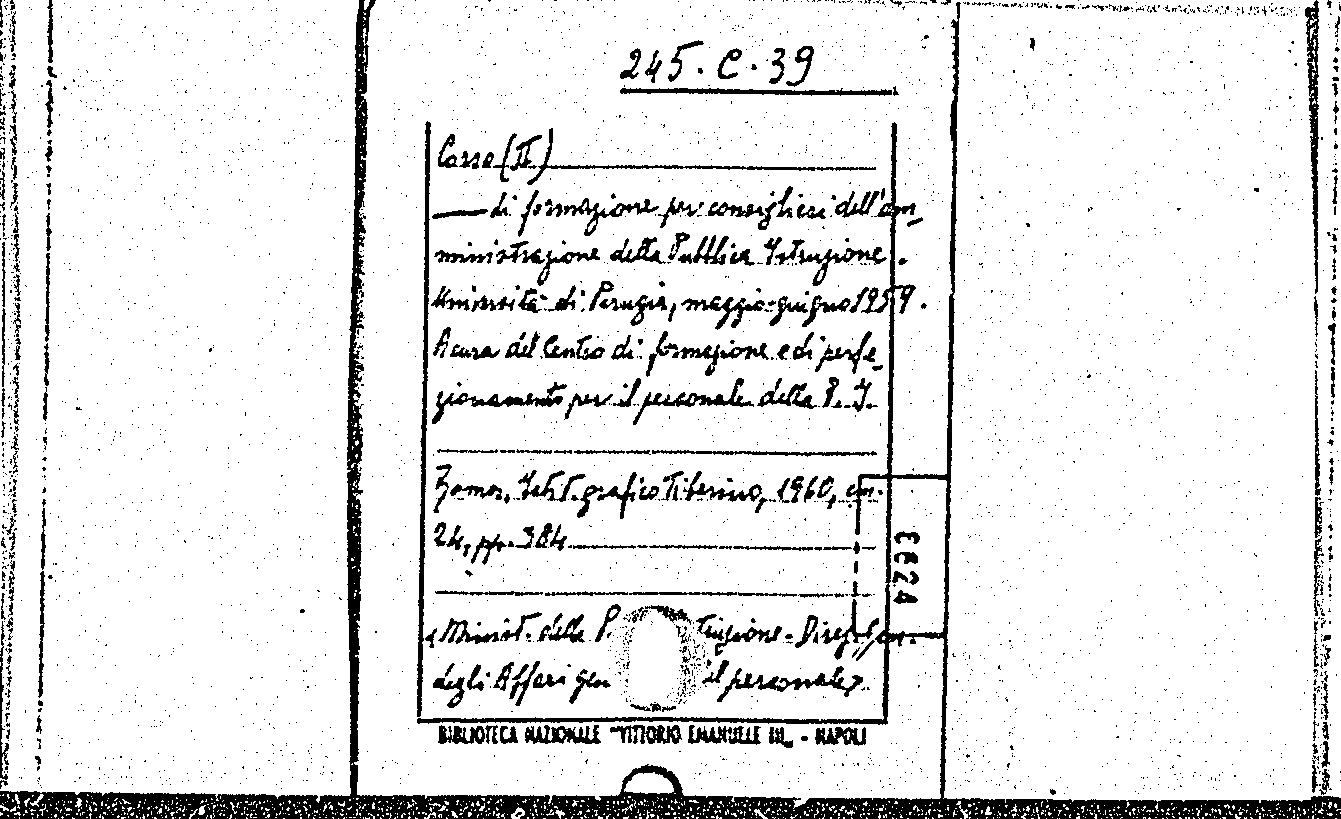 245. C. 39
Corso (II)
— di formazione per consiglieri dell'am_
ministrazione della Pubblica Istruzione.
Università di Perugia, maggio-giugno 1959.
A cura del Centro di formazione e di perfe_
zionamento per il personale della P. I.
Roma, Ist. Tipografico Tiberino, 1960, cm.
24, pp. 384
<Minist. della P. truzione - Direz. Gen.
degli Affari gen il personale>
BIBLIOTECA NAZIONALE "VITTORIO EMANUELE III„ - NAPOLI